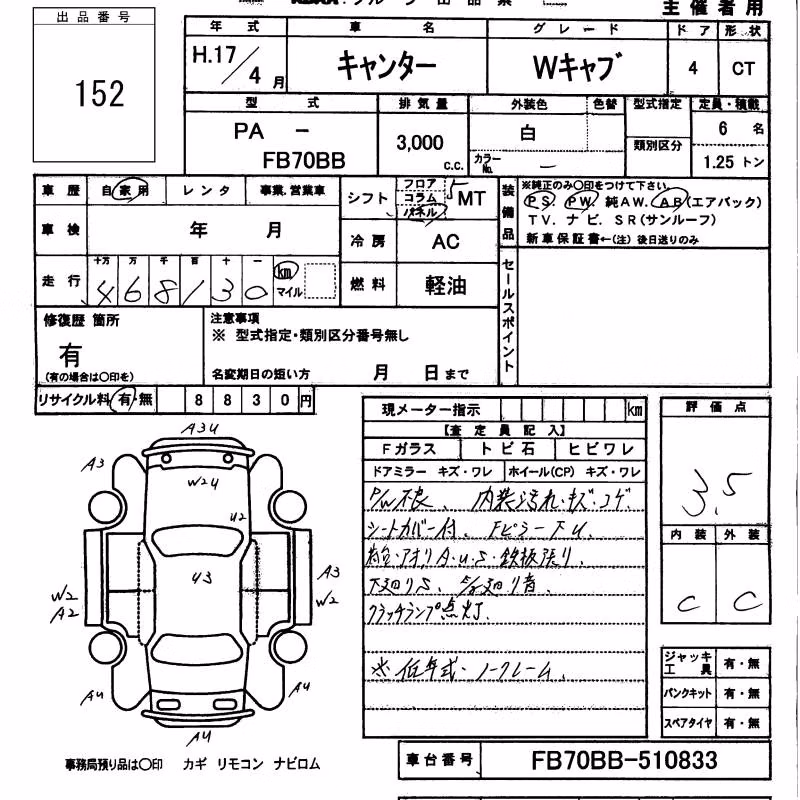 出品番号
152
主催者用
年式 車名 グレード ドア 形状
H.17/4月 キャンター Wキャブ 4 CT
型式 排気量 外装色 色替 型式指定 定員・積載
PA - FB70BB 3,000 c.c. 白 類別区分 6 名
カラーNo. - 1.25 トン
車歴 自家用 レンタ 事業.営業車
シフト フロア コラム パネル 5 MT
装備品 ※純正のみ〇印をつけて下さい.
PS PW 純AW. AB(エアバック)
TV. ナビ. SR(サンルーフ)
新車保証書←(注) 後日送りのみ
車検 年 月
冷房 AC
走行 十万 万 千 百 十 一
468130 km マイル
燃料 軽油
セールスポイント
修復歴 箇所
有
(有の場合は〇印を)
注意事項
※ 型式指定・類別区分番号無し
名変期日の短い方 月 日まで
リサイクル料 有・無 8830円
現メーター指示 km
【査定員記入】
Fガラス トビ石 ヒビワレ
ドアミラー キズ・ワレ ホイール(CP) キズ・ワレ
P/W不良、内装汚れ・キズ・コゲ
シートカバー付、FピラーFU
荷台・アオリA・U・S・鉄板張り、
下廻りS、
クラッチランプ点灯.
※低年式・ノークレーム、
評価点
3.5
内装 外装
C C
ジャッキ工具 有・無
パンクキット 有・無
スペアタイヤ 有・無
A3U
A3
W2U
U2
U3
A3
W2
W2
A2
A4
A4
A4
事務局預り品は〇印 カギ リモコン ナビロム
車台番号 FB70BB-510833